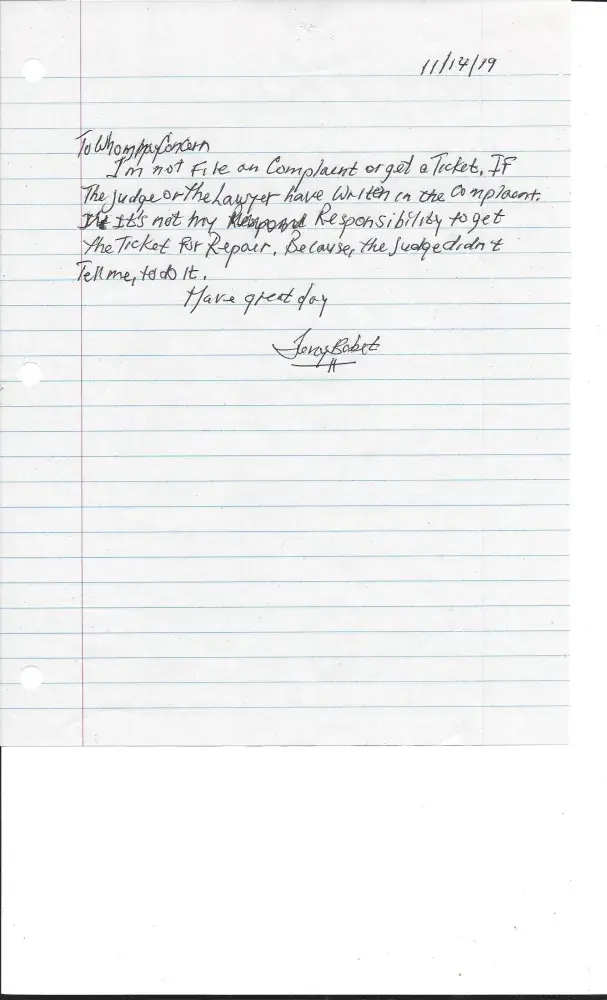 11/14/19
To Whom may Concern
I'm not File an Complaint or get a Ticket. If
The judge or the Lawyer have Written in the Complaent.
It's not my Responsibility to get
the Ticket For Repair. Because, the Judge didn't
Tell me, to do It.
Have great day